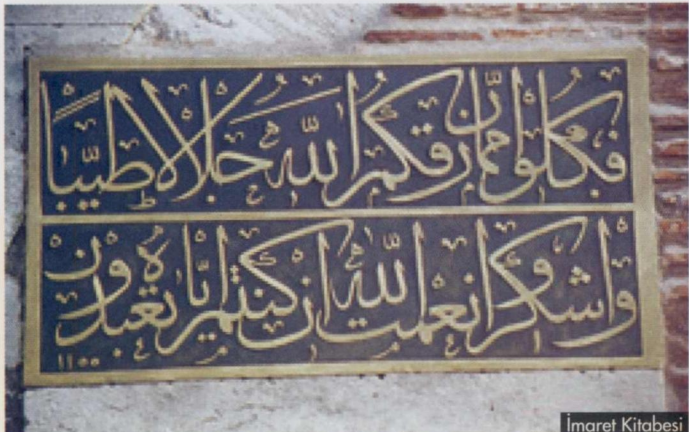 فَكُلُوا مِمَّا رَزَقَكُمُ اللّٰهُ حَلَالًا طَيِّبًا
وَاشْكُرُوا نِعْمَتَ اللّٰهِ اِنْ كُنْتُمْ اِيَّاهُ تَعْبُدُونَ
١١٥٥
İmaret Kitabesi